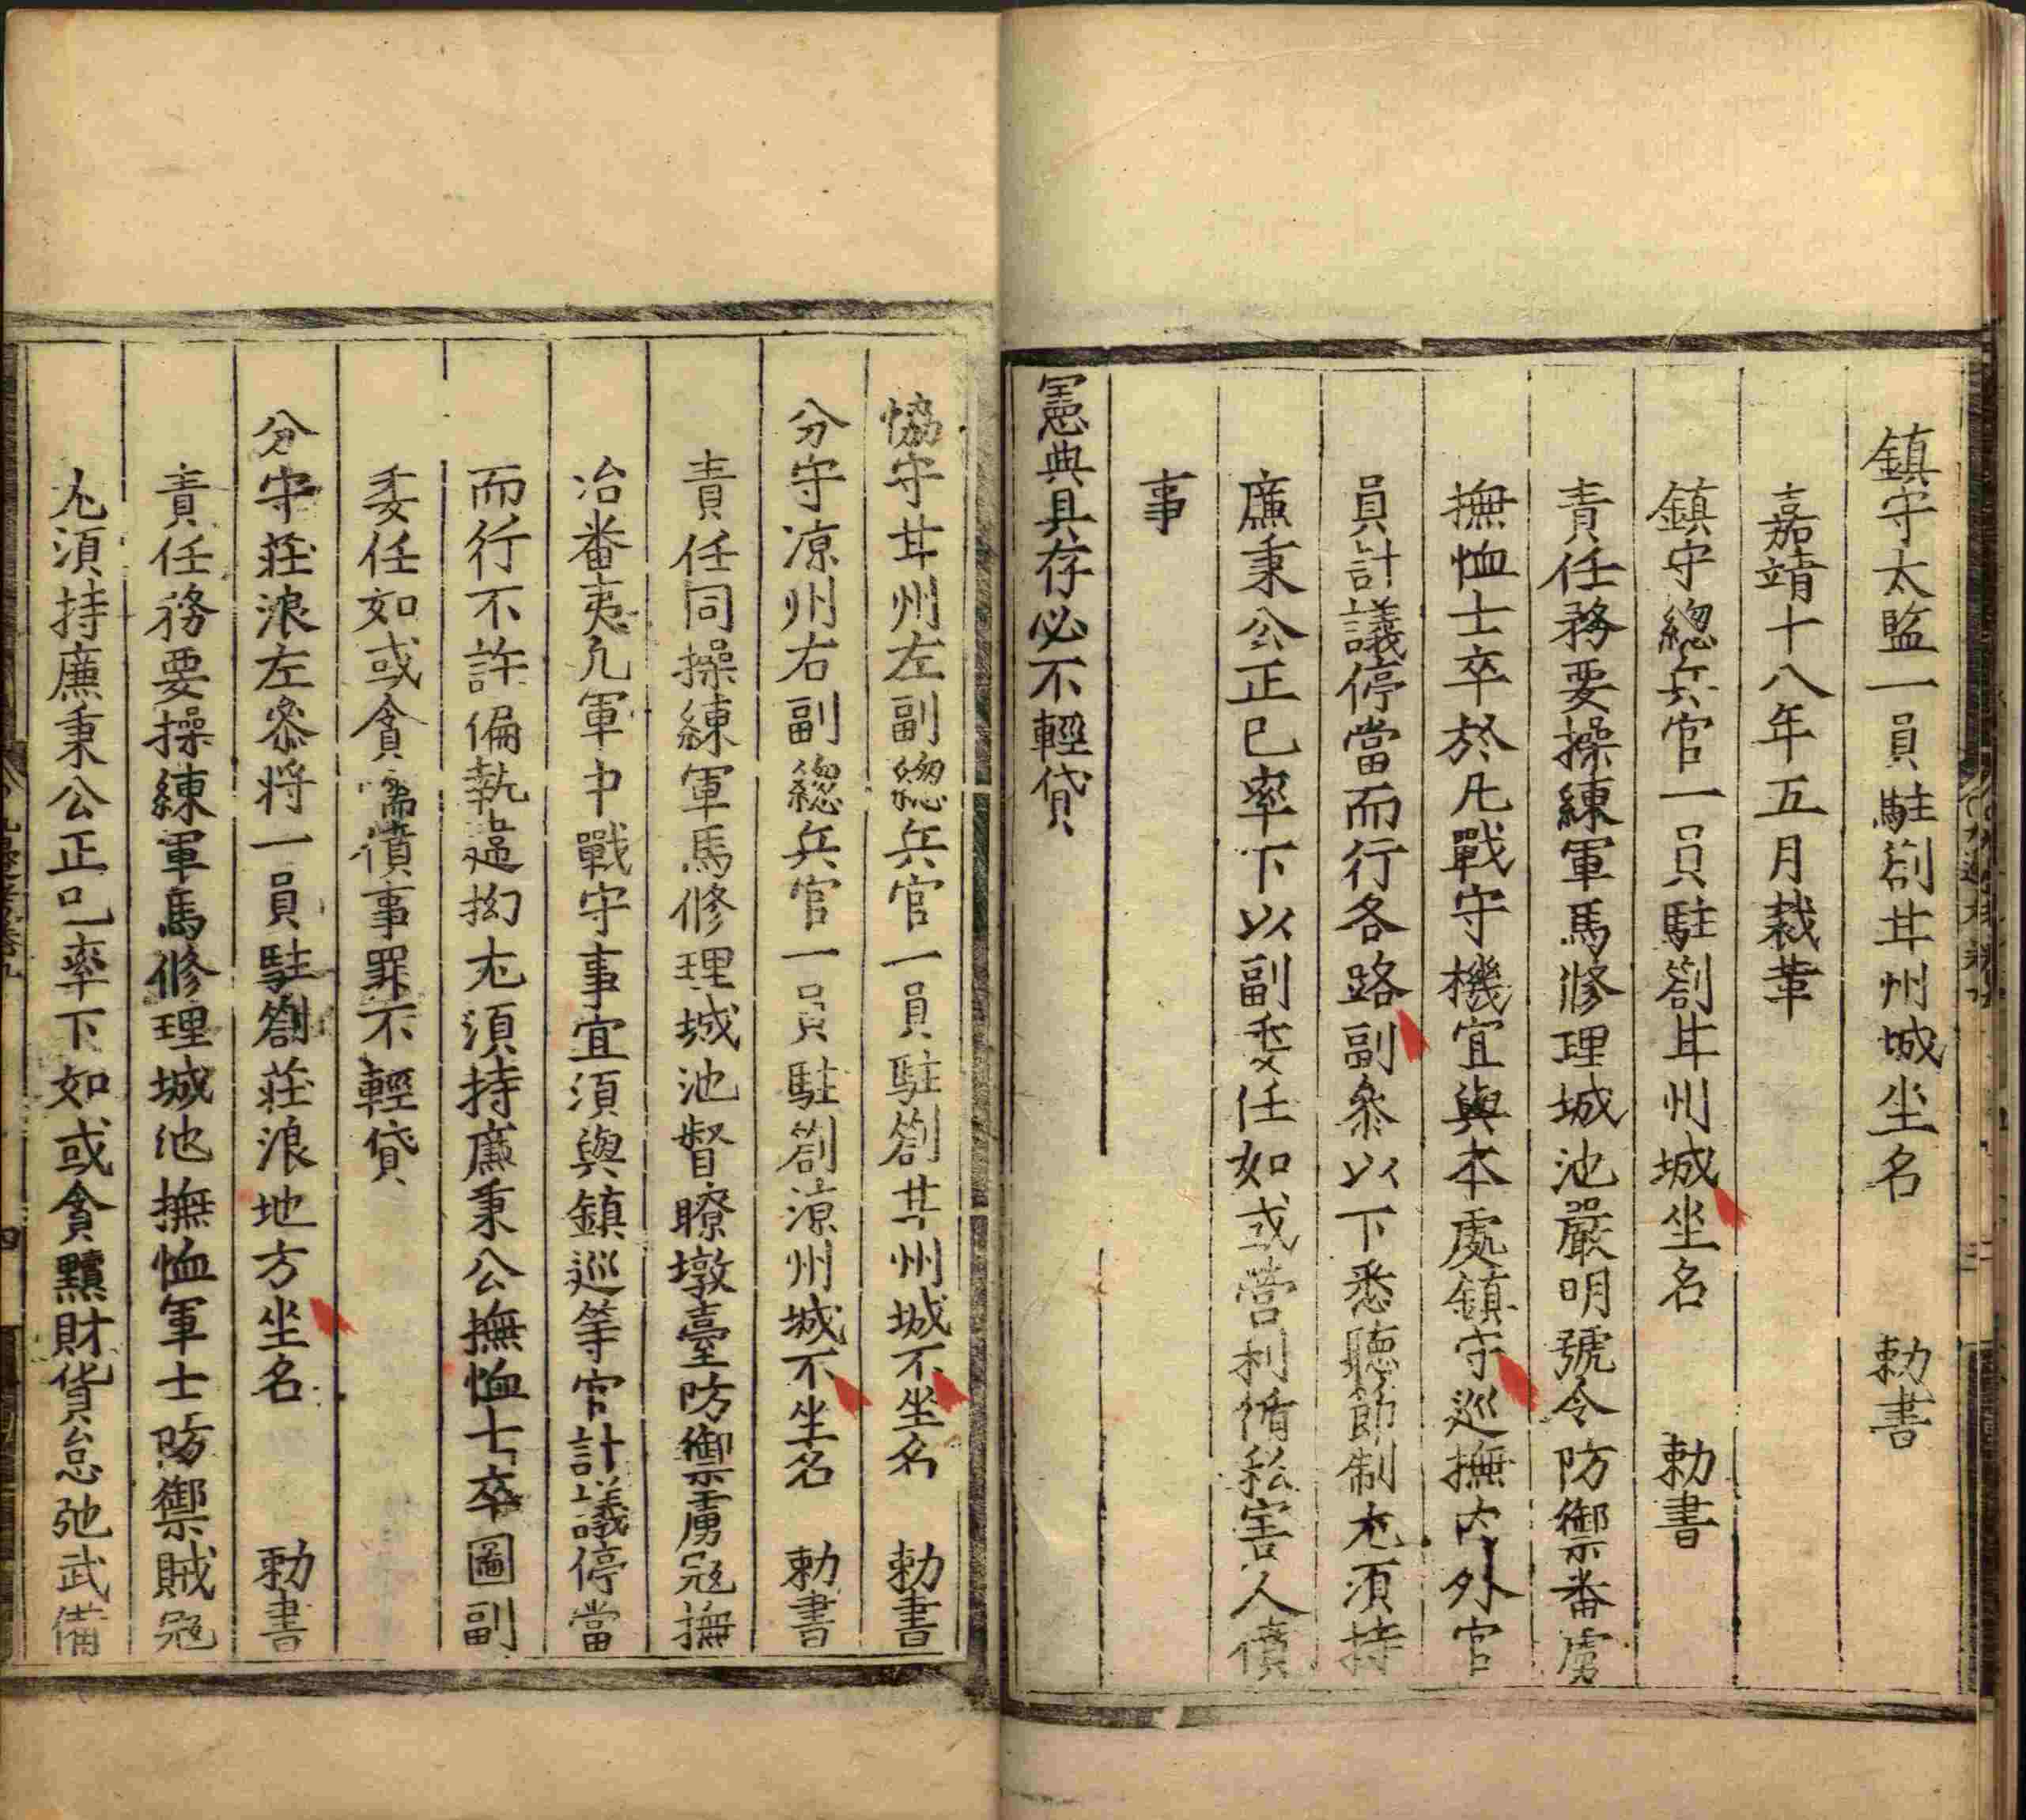 鎮守太監一員駐劄甘州城坐名　勅書
嘉靖十八年五月裁革
鎮守總兵官一員駐劄甘州城坐名　勅書
責任務要操練軍馬修理城池嚴明號令防禦番虜
撫恤士卒於凡戰守機宜與本處鎮守巡撫內外官
員計議停當而行各路副叅以下悉聽節制尤須持
廉秉公正己率下以副委任如或營利循私害人僨
事
憲典具存必不輕貸
恊守甘州左副總兵官一員駐劄甘州城不坐名　勅書
分守凉州右副總兵官一員駐劄凉州城不坐名　勅書
責任同操練軍馬修理城池督瞭墩臺防禦虜寇撫
治番夷凡軍中戰守事宜須與鎮巡等官計議停當
而行不許偏執違拗尤須持廉秉公撫恤士卒圖副
委任如或貪懦僨事罪不輕貸
分守莊浪左叅將一員駐劄莊浪地方坐名　勅書
責任務要操練軍馬修理城池撫恤軍士防禦賊寇
尤須持廉秉公正己率下如或貪黷財貨怠弛武備